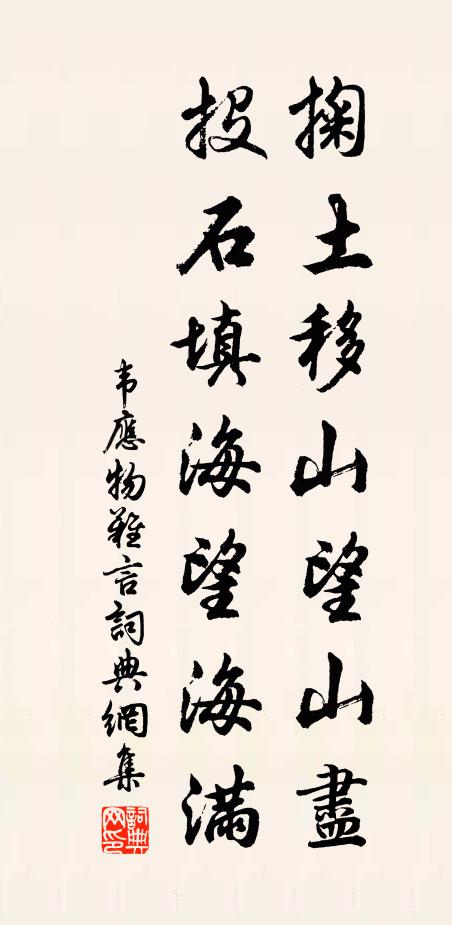 掬土移山望山盡
投石填海望海滿
韦應物難言詞典網集
詞典網印